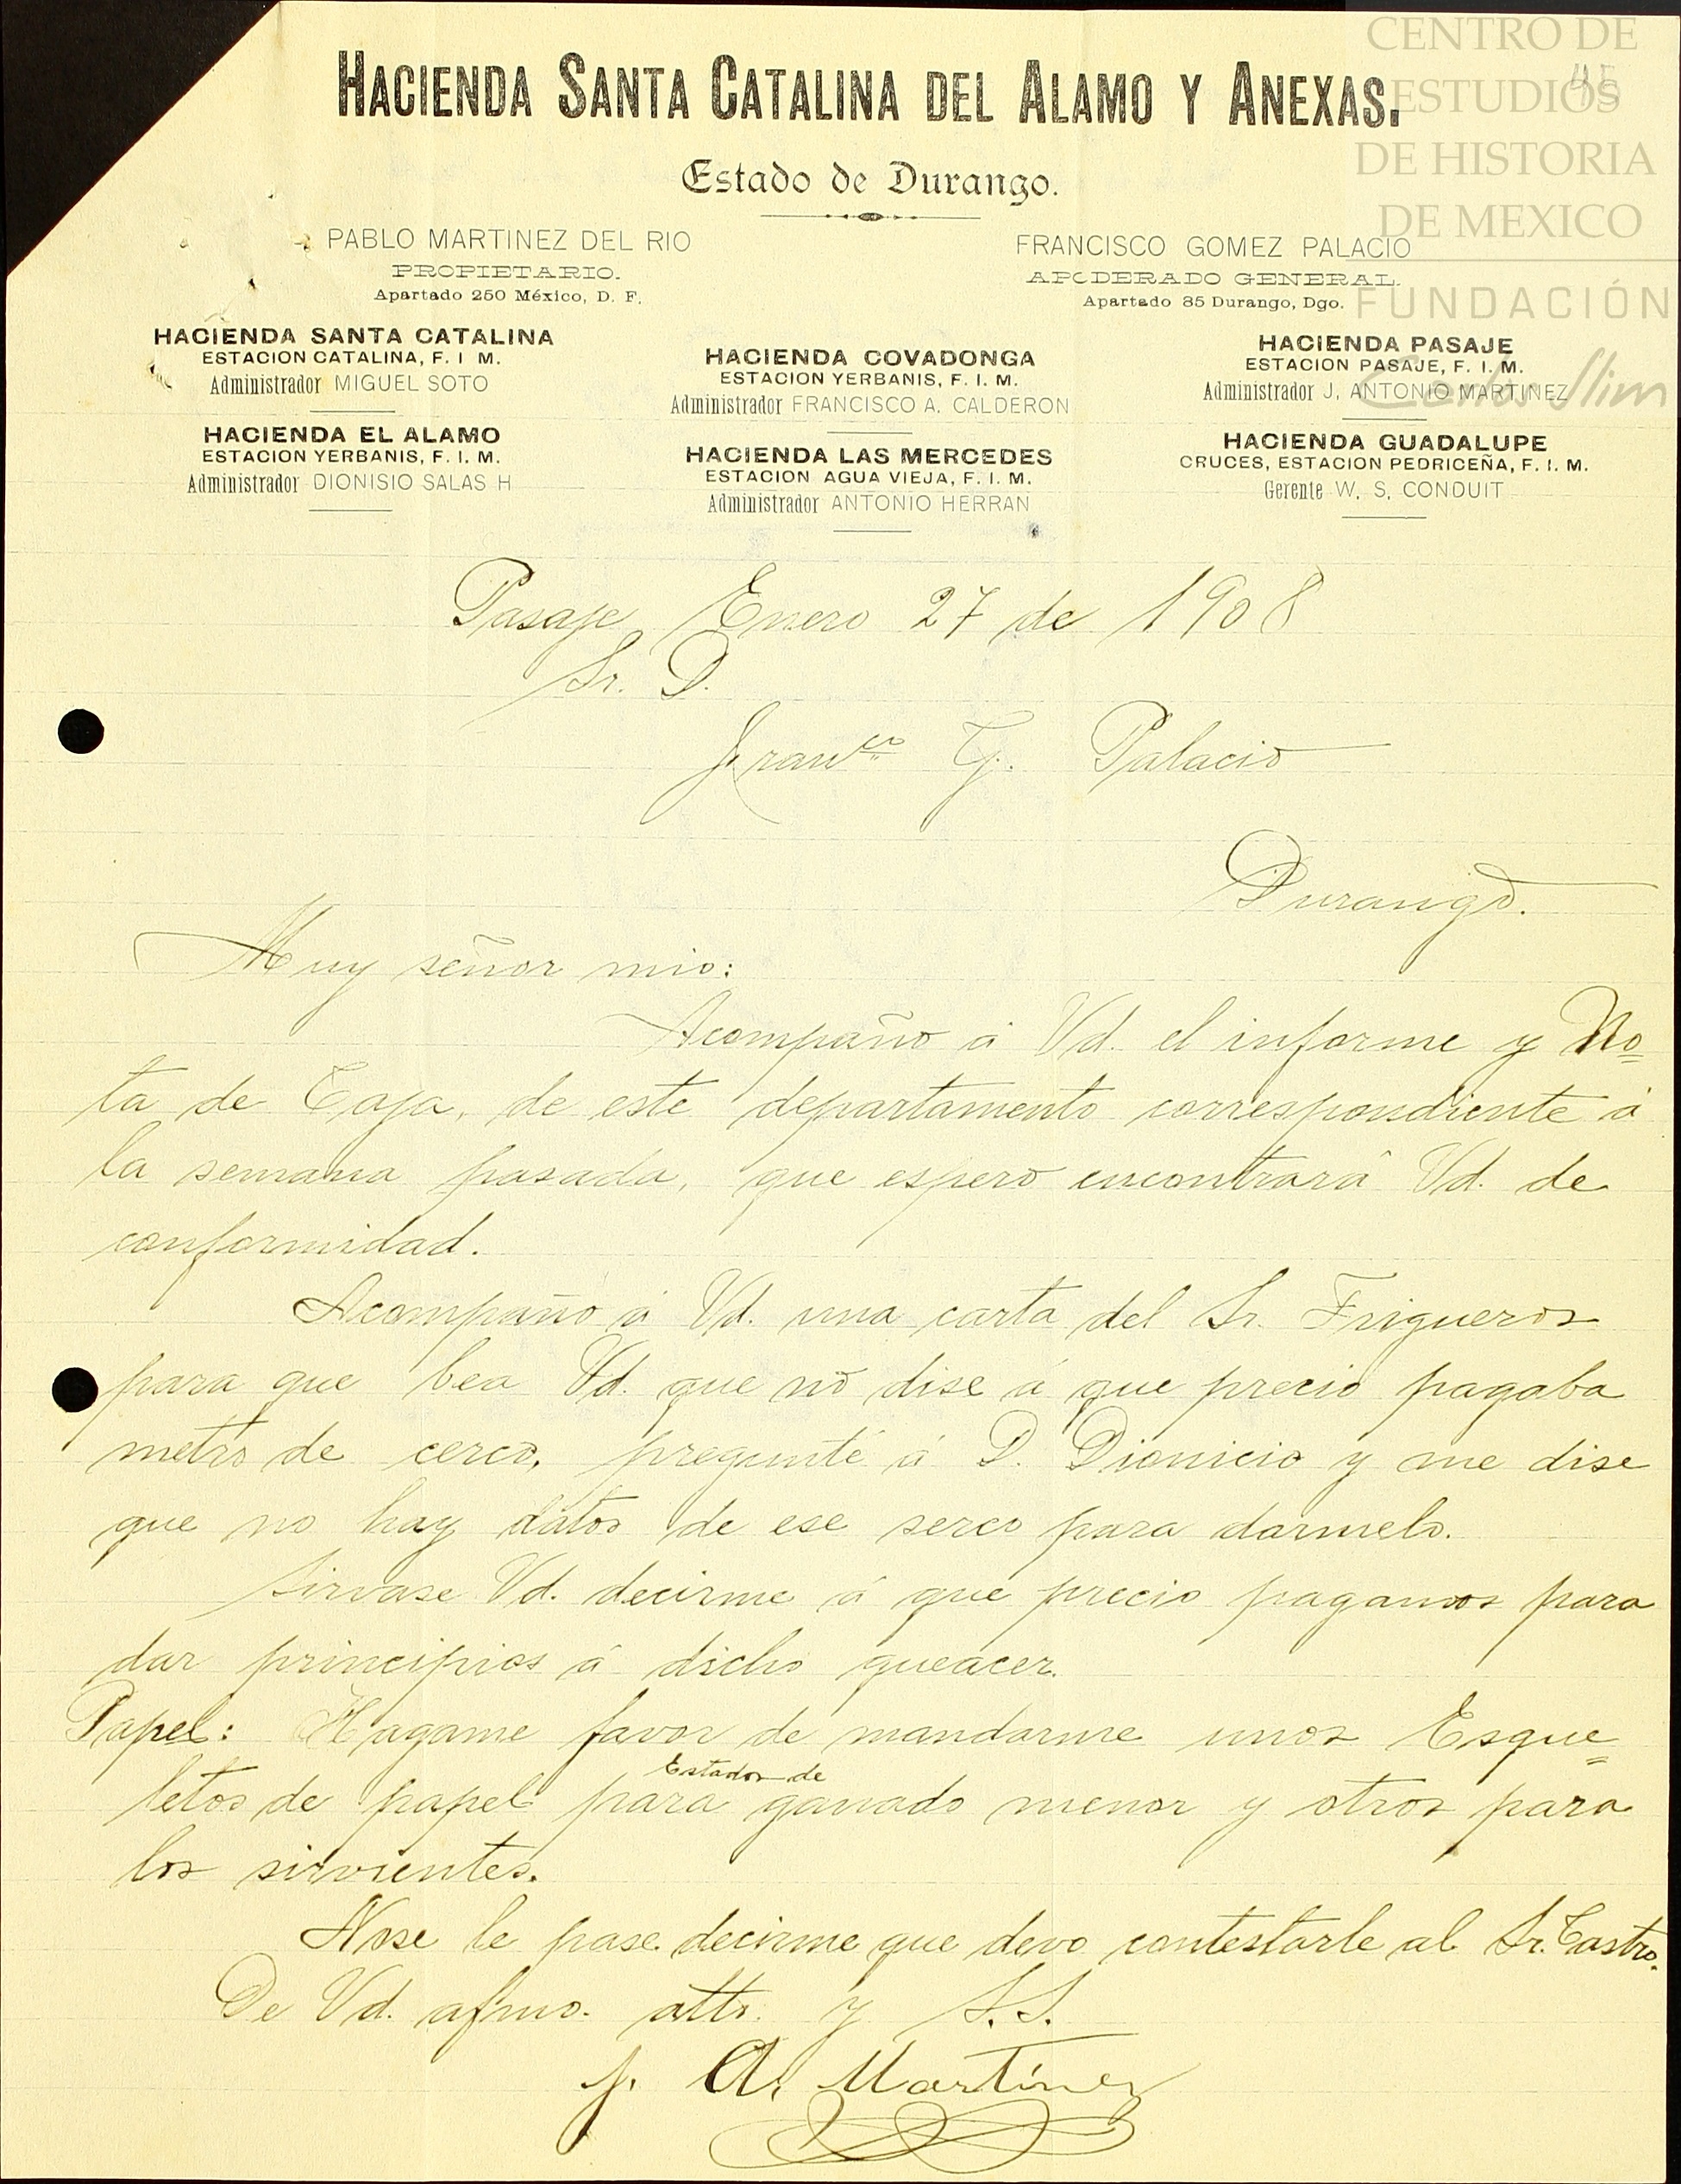 CENTRO DE
ESTUDIOS
DE HISTORIA
DE MEXICO
FUNDACIÓN
Carlos Slim
45
HACIENDA SANTA CATALINA DEL ALAMO Y ANEXAS.
Estado de Durango.
PABLO MARTINEZ DEL RIO
PROPIETARIO.
Apartado 250 México, D. F.
FRANCISCO GOMEZ PALACIO
APODERADO GENERAL.
Apartado 85 Durango, Dgo.
HACIENDA SANTA CATALINA
ESTACION CATALINA, F. I M.
Administrador MIGUEL SOTO
HACIENDA COVADONGA
ESTACION YERBANIS, F. I. M.
Administrador FRANCISCO A. CALDERON
HACIENDA PASAJE
ESTACION PASAJE, F. I. M.
Administrador J. ANTONIO MARTINEZ
HACIENDA EL ALAMO
ESTACION YERBANIS, F. I. M.
Administrador DIONISIO SALAS H
HACIENDA LAS MERCEDES
ESTACION AGUA VIEJA, F. I. M.
Administrador ANTONIO HERRAN
HACIENDA GUADALUPE
CRUCES, ESTACION PEDRICEÑA, F. I. M.
Gerente W. S. CONDUIT
Pasaje Enero 27 de 1908
Sr. D.
Franco. G. Palacio
Durango.
Muy señor mio:
Acompaño á Vd. el informe y No=
ta de Caja, de este departamento correspondiente á
la semana pasada, que espero encontrará Vd. de
conformidad.
Acompaño á Vd. una carta del Sr. Frigueros
para que bea Vd. que no dise á que precio pagaba
metro de cerco, pregunté á D. Dionicio y me dise
que no hay datos de ese serco para darmelo.
Sirvase Vd. decirme á que precio pagamos para
dar principios á dicho queacer.
Papel: Hagame favor de mandarme unos Esque=
letos de papel para Estados de ganado menor y otros para
los sirvientes.
Nose le pase decirme que devo contestarle al Sr. Castro.
De Vd. afmo. atto. y S.S.
J. A. Martínez